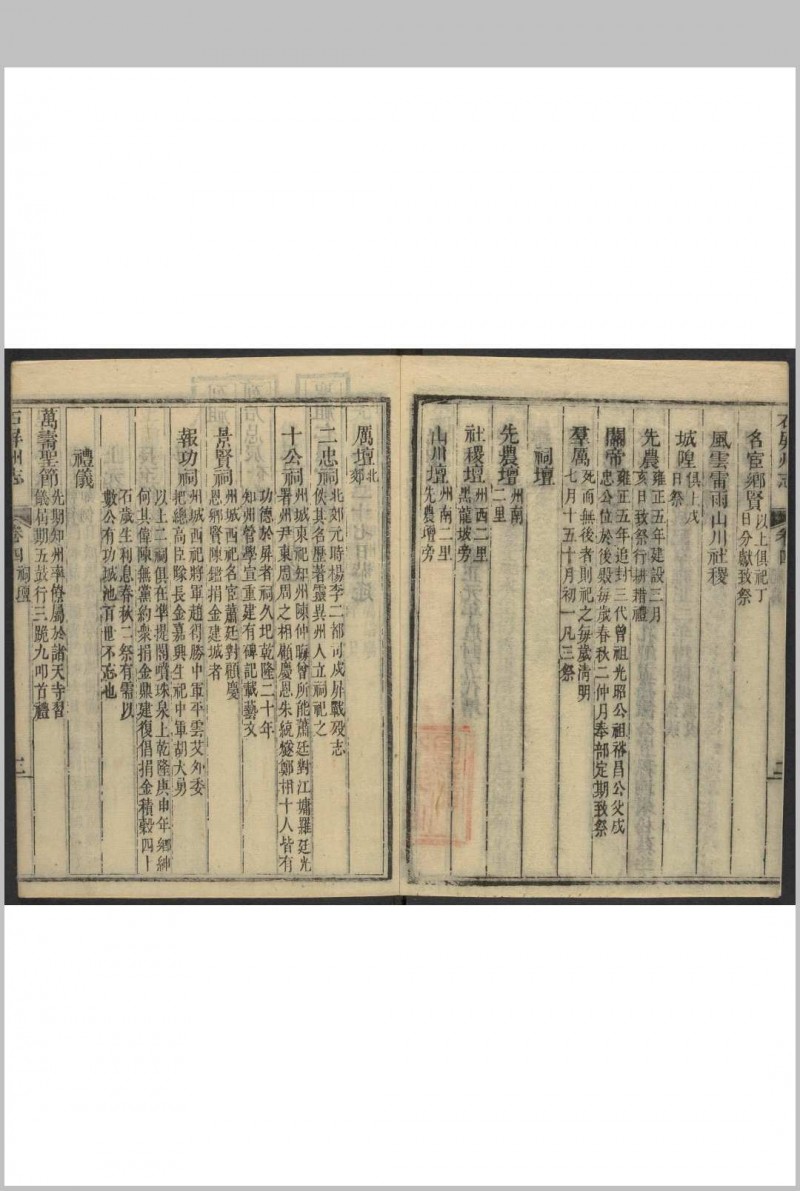 石屏州志 卷四 二
名宦鄉賢 以上俱祀丁
日分獻致祭
風雲雷雨山川社稷
城隍 俱上戊
日祭
先農 雍正五年建設三月
亥日致祭行耕耤禮
關帝 雍正五年追封三代曾祖光昭公祖裕昌公父成
忠公位於後殿每歲春秋二仲月奉部定期致祭
羣厲 死而無後者則祀之每歲清明
七月十五十月初一凡三祭
祠壇
先農壇 州南
二里
社稷壇 州西二里
黑龍坡旁
山川壇 州南二里
先農壇旁
厲壇 北
郊
二忠祠 北郊元時楊李二都司戍屏戰歿志
佚其名歷著靈異州人立祠祀之
十公祠 州城東祀知州陳仲晦曾所能蕭廷對江墉羅廷光
署州尹東周周之相顧慶恩朱統鐩鄭相十人皆有
功德於屏者祠久圮乾隆二十年
知州管學宣重建有碑記載藝文
景賢祠 州城西祀名宦蕭廷對顧慶
恩鄉賢陳鑑捐金建城者
報功祠 州城西祀將軍趙得勝中軍平雲艾外委
把總高臣隊長金嘉興生祀中軍胡大勇
以上二祠俱在準提閣噴珠泉上乾隆庚申年鄉紳
何其偉陳無黨約衆捐金鼎建復倡捐金積穀四十
石歲生利息春秋二祭有需以
數公有功城池百世不忘也
禮儀
萬壽聖節 先期知州率僚屬於諸天寺習
儀屆期五鼓行三跪九叩首禮
石屏州志 卷四 祠壇 三